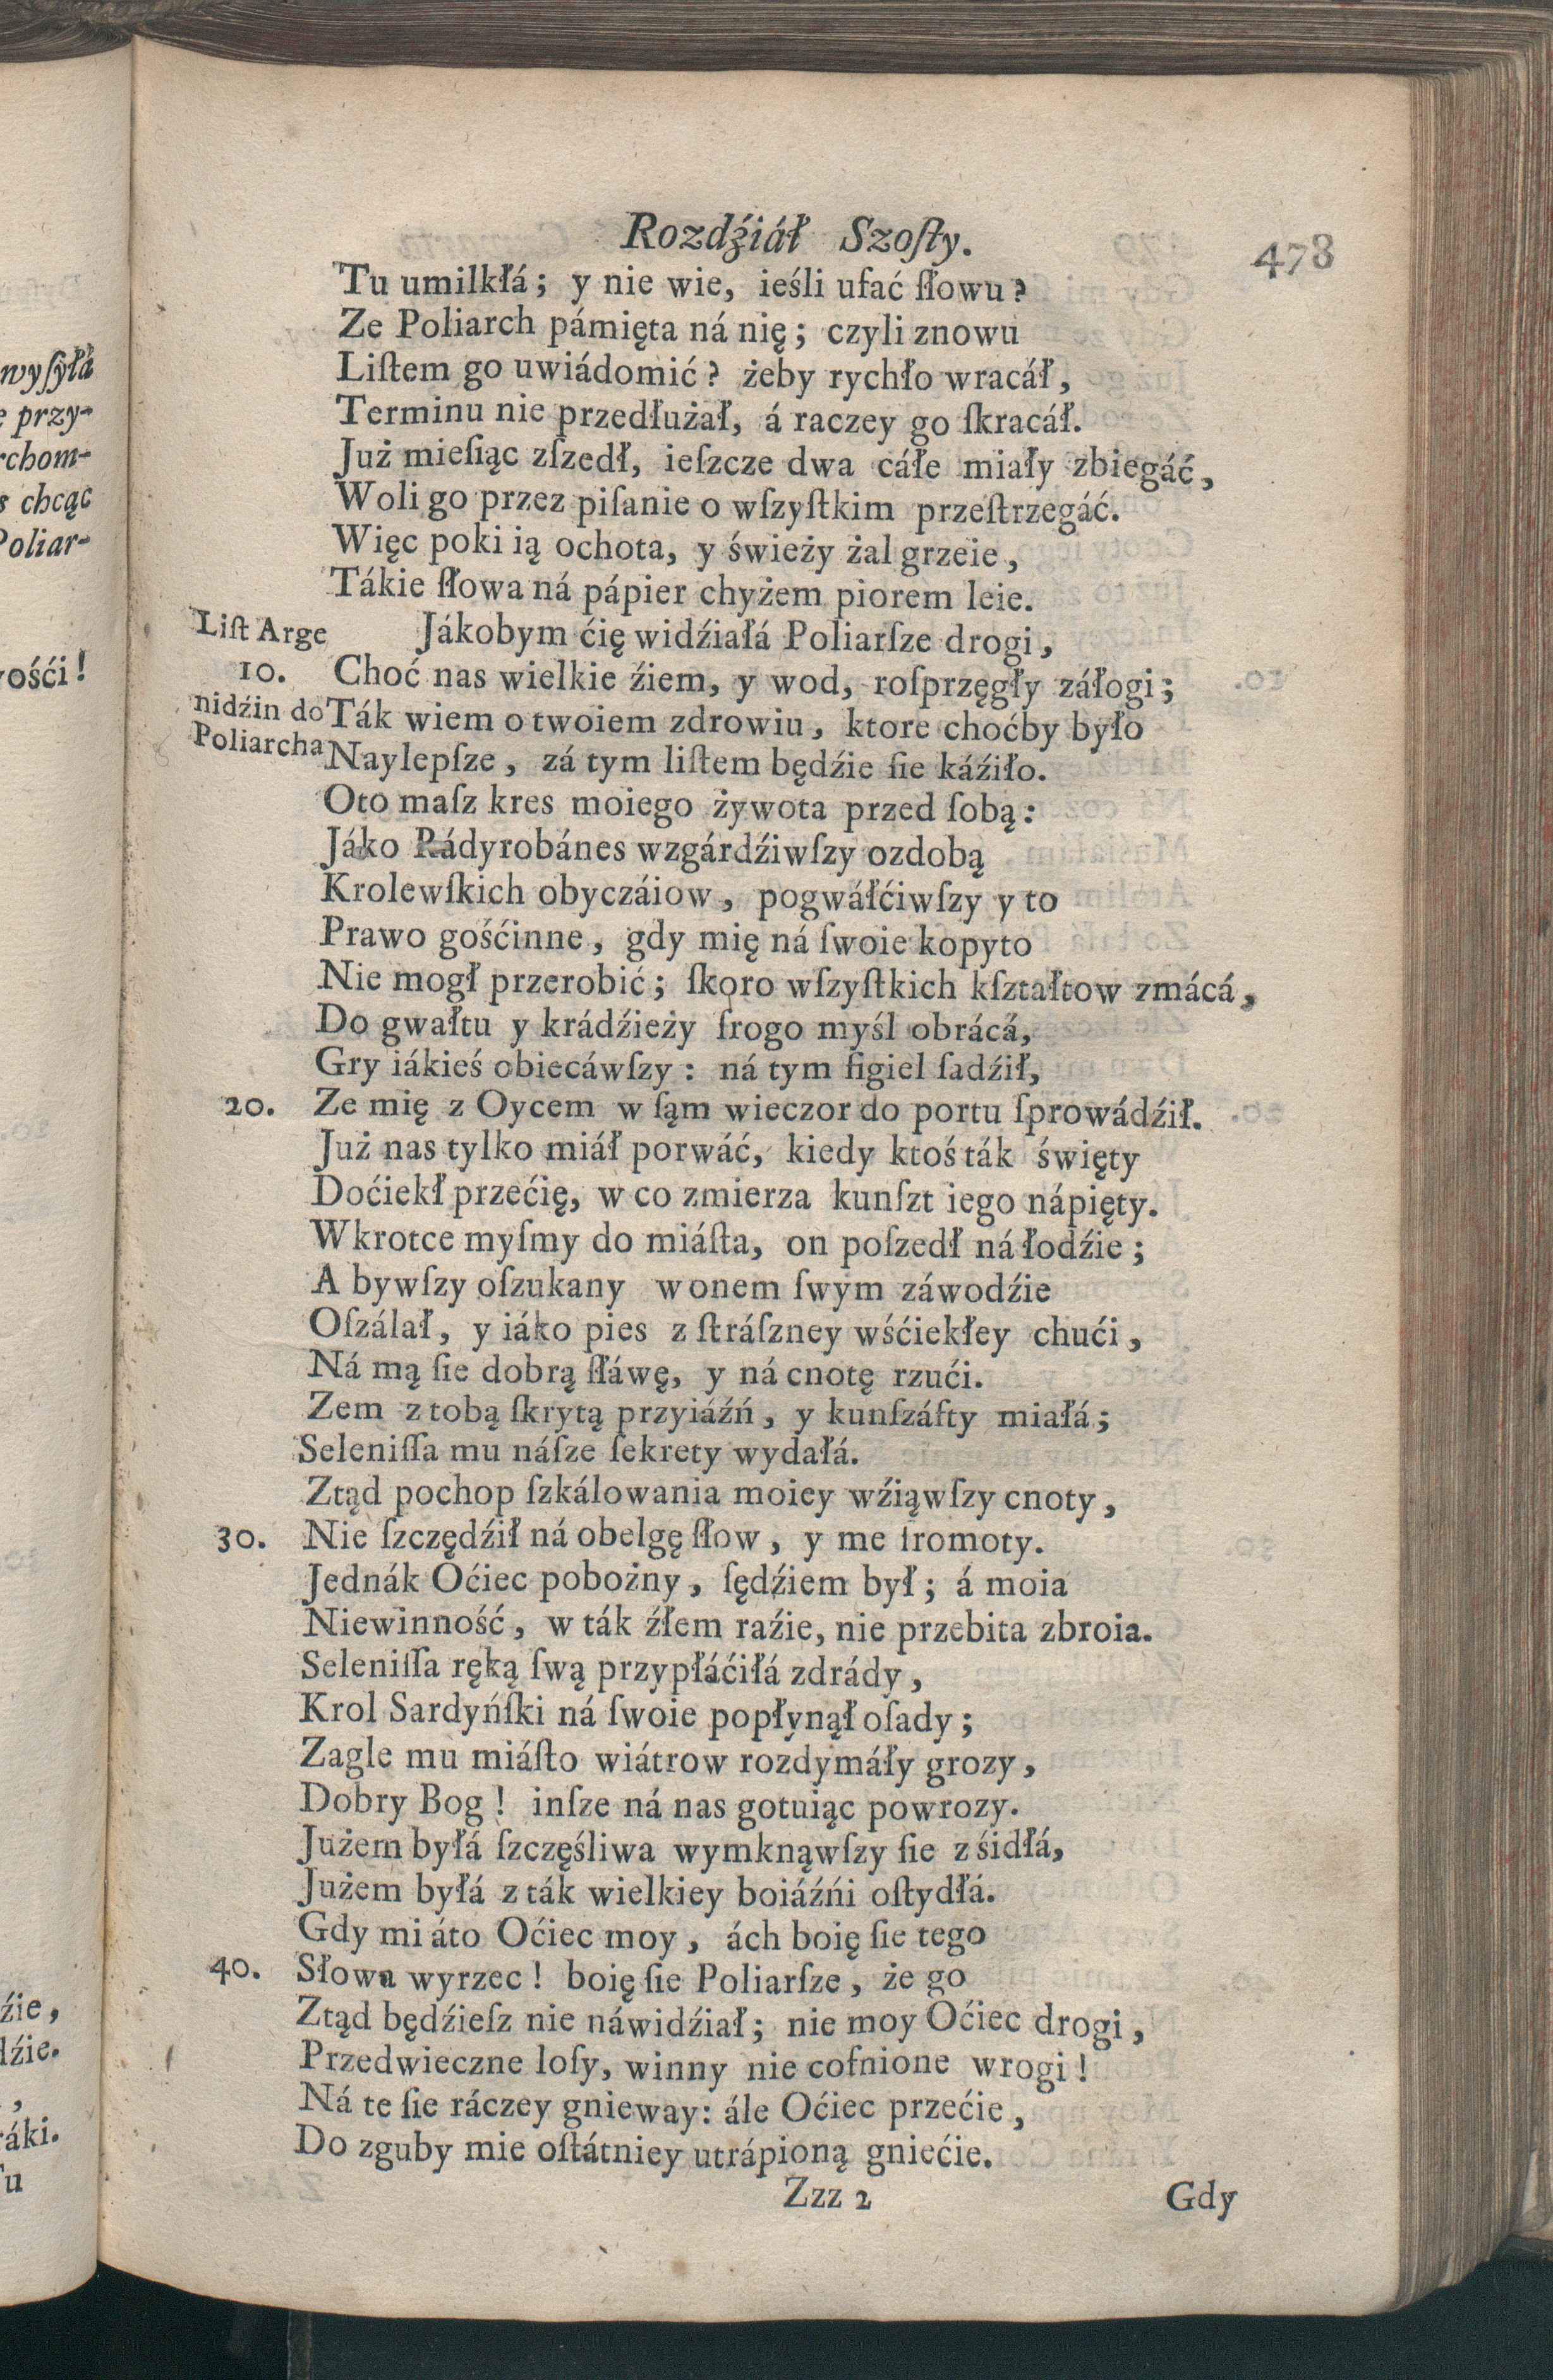 wyſyłá
e przy-
rchom-
s chcąc
Poliar-
vośći!
źie,
dźie.
,
ráki.
Tu
Rozdźiáł Szoſty.
478
Tu umilkłá; y nie wie, ieśli ufać ſłowu?
Ze Poliarch pámięta ná nię; czyli znowu
Liſtem go uwiádomić? żeby rychło wracáł,
Terminu nie przedłużał, á raczey go ſkracáł.
Już mieſiąc zſzedł, ieſzcze dwa cáłe miały zbiegáć,
Woli go przez piſanie o wſzyſtkim przeſtrzegáć.
Więc poki ią ochota, y świeży żal grzeie,
Tákie ſłowa ná pápier chyżem piorem leie.
Liſt Arge Jákobym ćię widźiałá Poliarſze drogi,
10. Choć nas wielkie źiem, y wod, roſprzęgły záłogi;
nidźin do Ták wiem o twoiem zdrowiu, ktore choćby było
Poliarcha Naylepſze, zá tym liſtem będźie ſie káźiło.
Oto maſz kres moiego żywota przed ſobą:
Jáko Rádyrobánes wzgárdźiwſzy ozdobą
Krolewſkich obyczáiow, pogwáłćiwſzy y to
Prawo gośćinne, gdy mię ná ſwoie kopyto
Nie mogł przerobić; ſkoro wſzyſtkich kſztałtow zmácá,
Do gwałtu y krádźieży ſrogo myśl obrácá,
Gry iákieś obiecáwſzy: ná tym figiel ſadźił,
20. Ze mię z Oycem w ſąm wieczor do portu ſprowádźił.
Już nas tylko miáł porwáć, kiedy ktoś ták święty
Doćiekł przećię, w co zmierza kunſzt iego nápięty.
Wkrotce myſmy do miáſta, on poſzedł ná łodźie;
A bywſzy oſzukany w onem ſwym záwodźie
Oſzálał, y iáko pies z ſtráſzney wśćiekłey chući,
Ná mą ſie dobrą ſłáwę, y ná cnotę rzući.
Zem z tobą ſkrytą przyiáźń, y kunſzáfty miałá;
Seleniſſa mu náſze ſekrety wydałá.
Ztąd pochop ſzkálowania moiey wźiąwſzy cnoty,
30. Nie ſzczędźił ná obelgę ſłow, y me ſromoty.
Jednák Oćiec pobożny, ſędźiem był; á moia
Niewinność, w ták źłem raźie, nie przebita zbroia.
Seleniſſa ręką ſwą przypłáćiłá zdrády,
Krol Sardyńſki ná ſwoie popłynął oſady;
Zagle mu miáſto wiátrow rozdymáły grozy,
Dobry Bog! inſze ná nas gotuiąc powrozy.
Jużem byłá ſzczęśliwa wymknąwſzy ſie z śidłá,
Jużem byłá z ták wielkiey boiáźńi oſtydłá.
Gdy mi áto Oćiec moy, ách boię ſie tego
40. Słowa wyrzec! boię ſie Poliarſze, że go
Ztąd będźieſz nie náwidźiał; nie moy Oćiec drogi,
Przedwieczne loſy, winny nie cofnione wrogi!
Ná te ſie ráczey gnieway: ále Oćiec przećie,
Do zguby mie oſtátniey utrápioną gniećie.
Zzz 2
Gdy